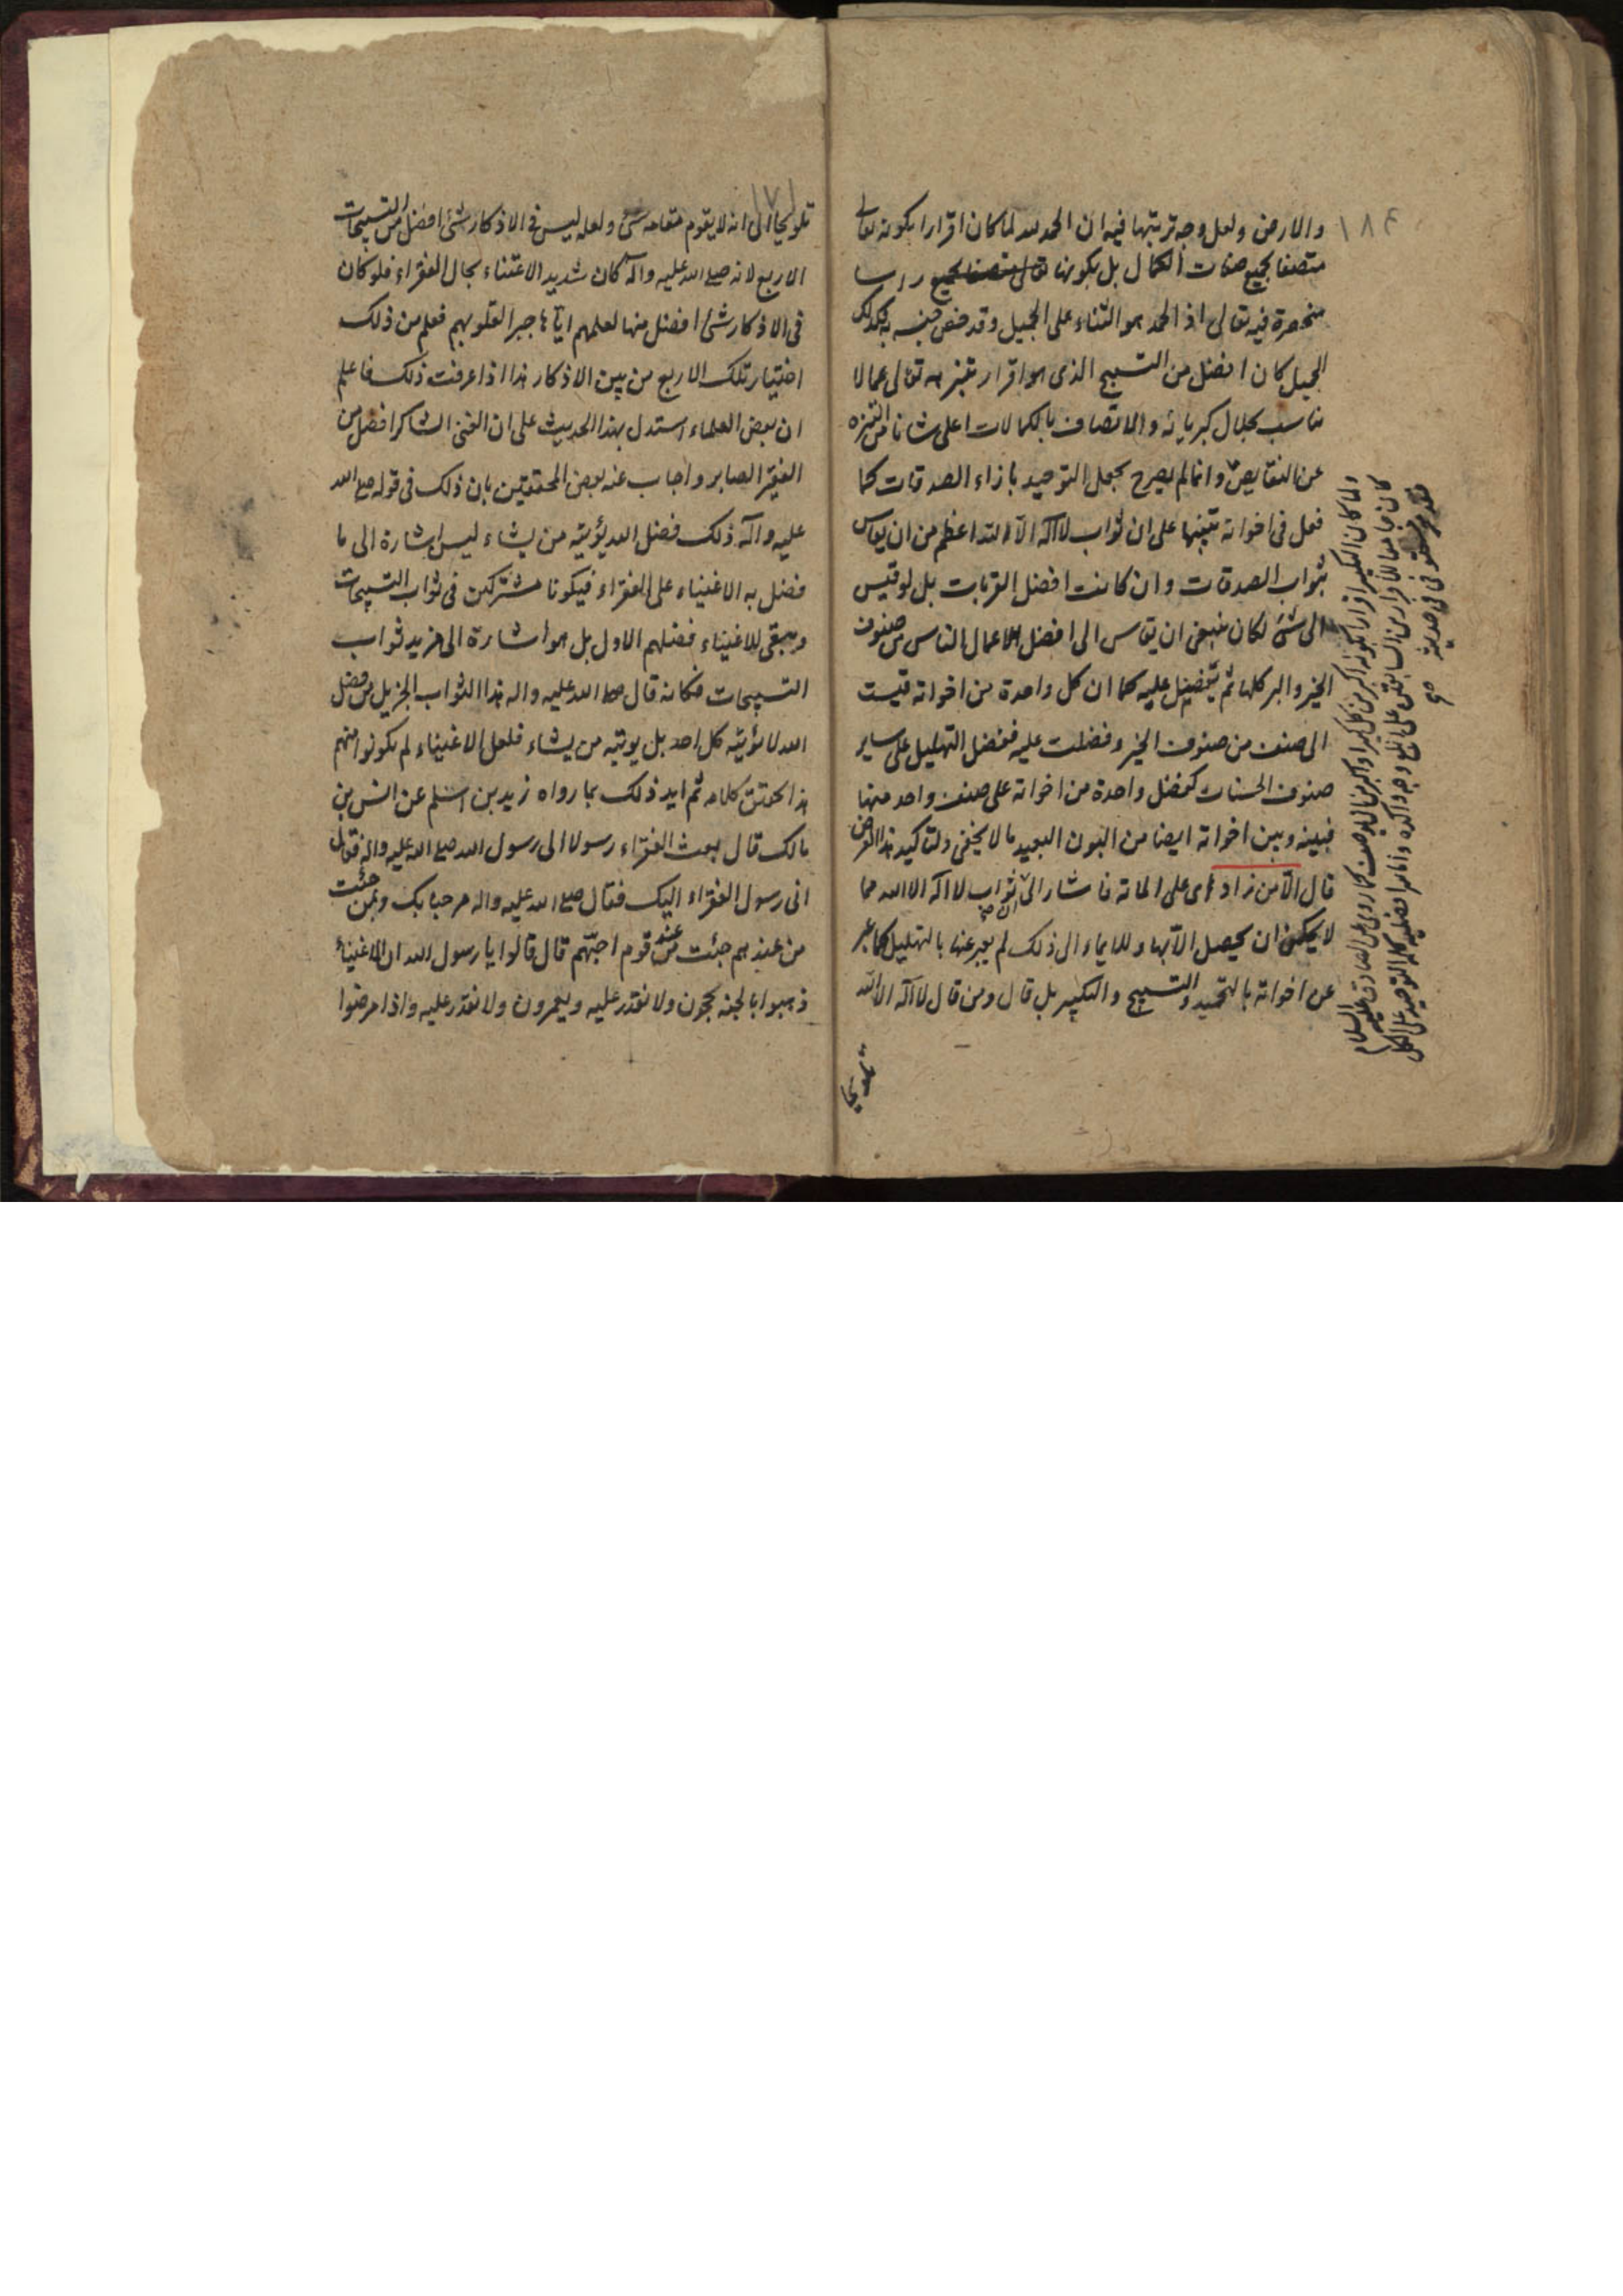 ١٨٤
والارض ولعل وجه ترتيبها فيه ان الحمد لله لما كان اقرارا بكونه تعالى
متصفا بجميع صفات الكمال بل بكونها
منحصرة فيه تعالى اذ الحمد هو الثناء على الجميل وقد خص جنسه به فكذلك
الجميل كان افضل من التسبيح الذى هو اقرار بتنزهه تعالى عما لا
يناسب بجلال كبريائه والاتصاف بالكمالات اعلى شانا من التنزه
عن النقايص وانما لم يصرح بجعل التوحيد بازاء الصدقات كما
فعل فى اخواته تنبيها على ان ثواب لا اله الا الله اعظم من ان يقاس
بثواب الصدقات وان كانت افضل القربات بل لو قيس
الى شئ لكان ينبغى ان يقاس الى افضل اعمال الناس من صنوف
الخير والبر كلها ثم يفضل عليه كما ان كل واحدة من اخواته قيست
الى صنف من صنوف الخير وفضلت عليه ففضل التهليل على ساير
صنوف الحسنات كفضل واحدة من اخواته على صنف واحد منها
فبينه وبين اخواته ايضا من البون البعيد ما لا يخفى ولتاكيد هذا الغرض
قال الا من زاد اى على الماة فاشار الى ان ثواب لا اله الا الله مما
لا يمكن ان يحصل الا بها وللايماء الى ذلك لم يعبر عنها بالتهليل كما عبر
عن اخواته بالتحميد والتسبيح والتكبير بل قال ومن قال لا اله الا الله
تلويحا
ولما كان التكبير اقرارا بكونه اكبر من كل كبير او اكبر من ان يوصف كما روى عن الصادق عليه السلام
كان جامعا للاقرارين السابقين على ابلغ وجه واكده واما سر افضلية كلمة التوحيد على الكل
فقد فى حديثه صح
١٧١
تلويحا الى انه لا يقوم مقامه شئ ولعله ليس فى الاذكار شئ افضل من التسبيحات
الاربع لانه صلى الله عليه وآله كان شديد الاعتناء بحال الفقراء فلو كان
فى الاذكار شئ افضل منها لعلمهم اياها جبرا لقلوبهم فعلم من ذلك
اختيار تلك الاربع من بين الاذكار هذا اذا عرفت ذلك فاعلم
ان بعض العلماء استدل بهذا الحديث على ان الغنى الشاكر افضل من
الفقير الصابر واجاب عنه بعض المحققين بان ذلك فى قوله صلى الله
عليه وآله ذلك فضل الله يؤتيه من يشاء ليس اشارة الى ما
فضل به الاغنياء على الفقراء فيكونا مشتركين فى ثواب التسبيحات
ويبقى للاغنياء فضلهم الاول بل هو اشارة الى مزيد ثواب
التسبيحات فكانه قال صلى الله عليه واله هذا الثواب الجزيل من فضل
الله لا يؤتيه كل احد بل يوتيه من يشاء فلعل الاغنياء لم يكونوا منهم
هذا محقق كلامه ثم ايد ذلك بما رواه زيد بن اسلم عن انس بن
مالك قال بعث الفقراء رسولا الى رسول الله صلى الله عليه واله فقال
انى رسول الفقراء اليك فقال صلى الله عليه واله مرحبا بك وبمن جئت
من عندهم جئت من عند قوم احبهم قال قالوا يا رسول الله ان الاغنياء
ذهبوا بالجنة يحجون ولا نقدر عليه ويعمرون ولا نقدر عليه واذا مرضوا